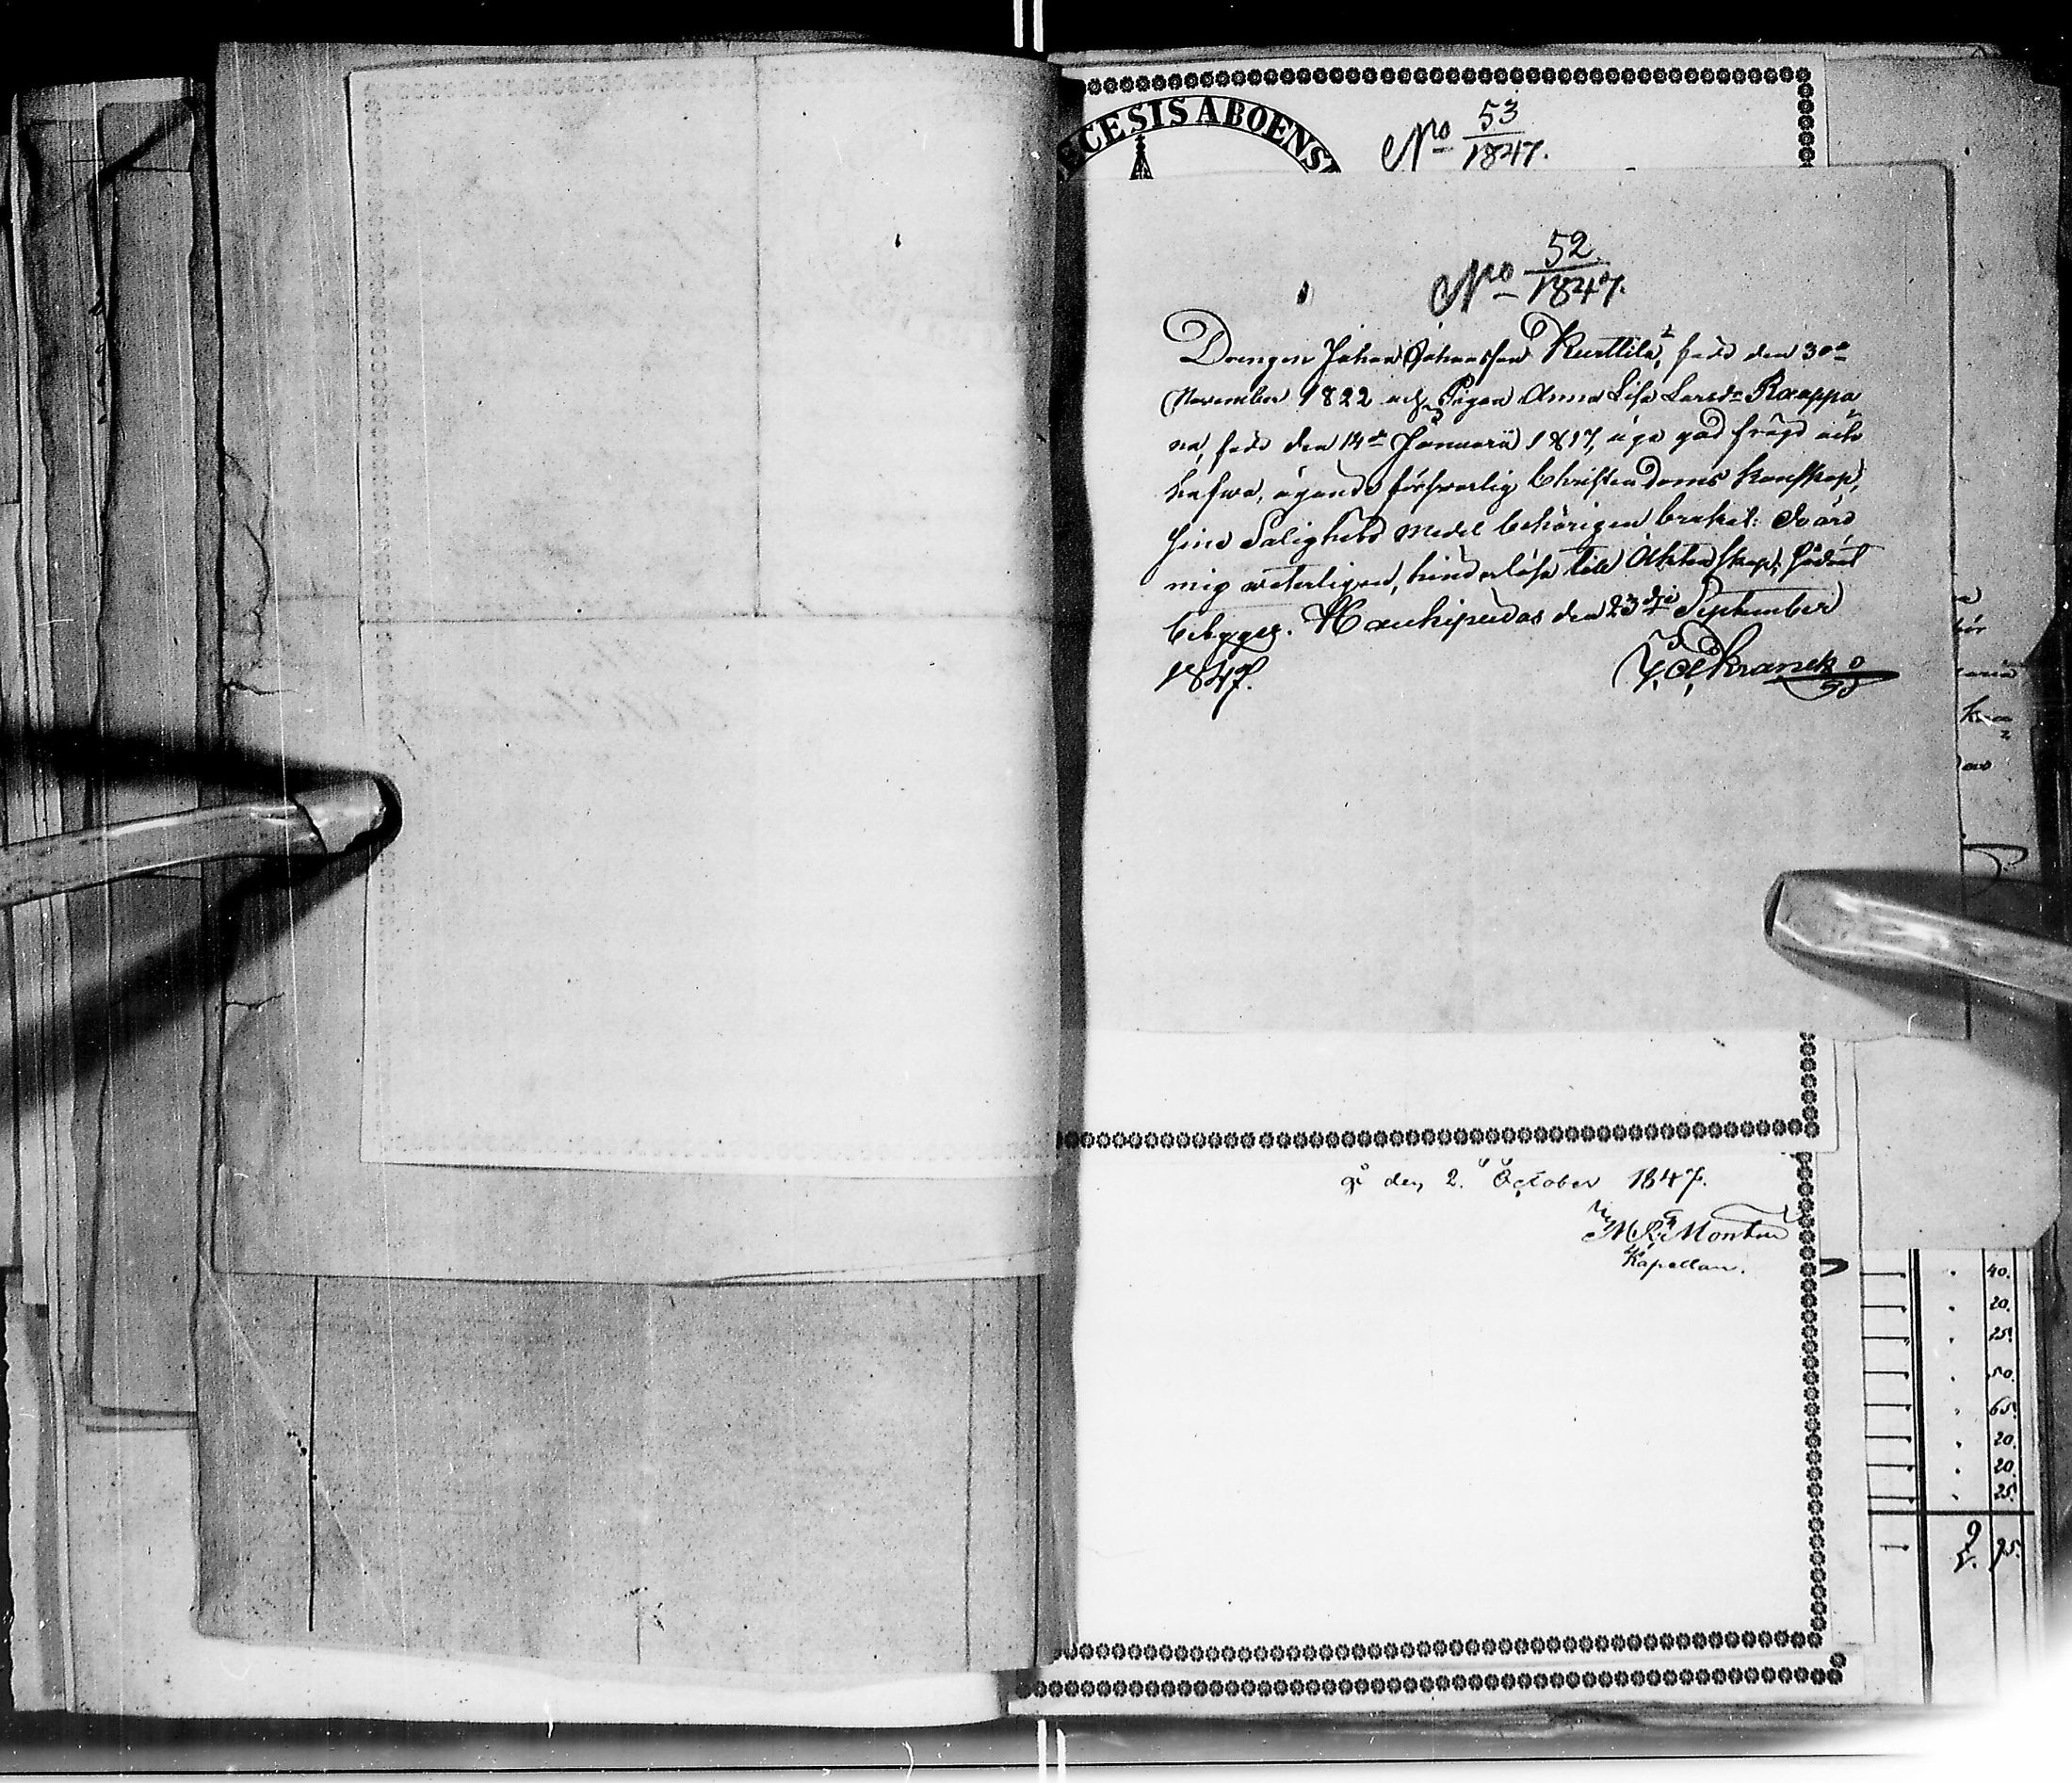 ECESIS ABOENS
No 53/1847.
No 52/1847.
Drengen Johan Johansson Kurttila, född den 30de
November 1822 och Pigan Anna Lisa Larsdr Kaappa
na, född den 14de Januarii 1817, äga god frägd och
hafwa, ägande förswarlig Christendoms kunskap,
sine Salighets medel behörigen brukat: So äro
mig weterligen, hinderlöse till Äktenskap; sådant
betygges. Haukipudas den 23dje September
1847.
qi den 2. October 1847.
Kapellan.
40.
20.
25.
50.
65.
20.
20.
25.